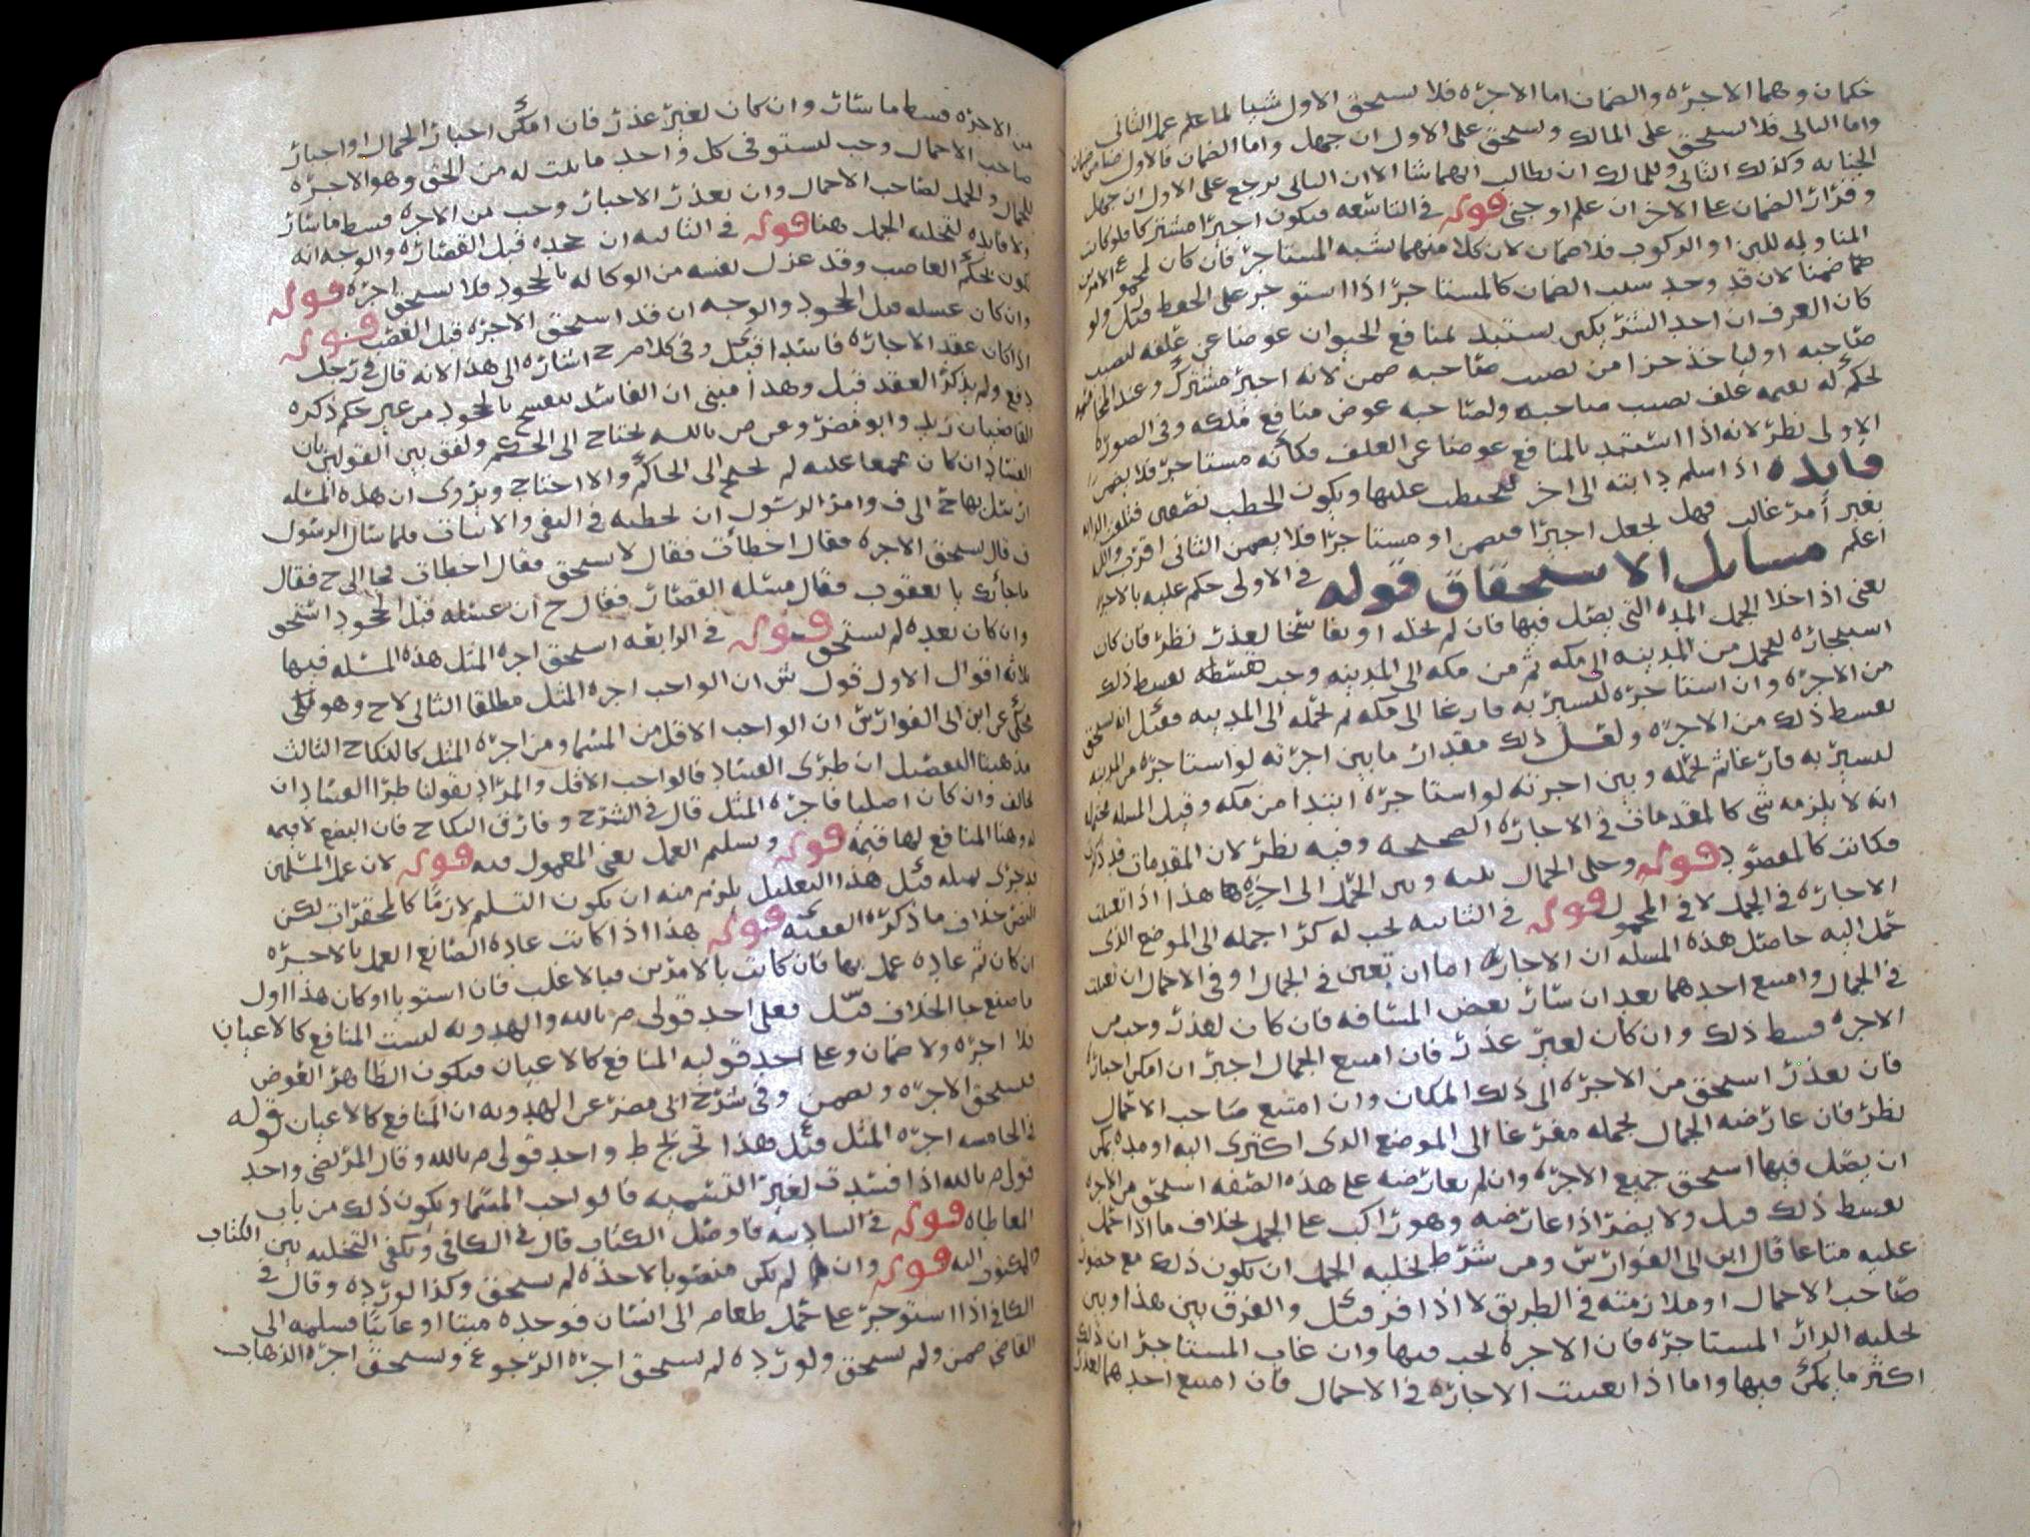 حكمان وهما الاجره والضمان اما الاجره فلا يستحق الاول شيا لما علم عمل الثاني
واما الثاني فلا يستحق على المالك ويستحق على الاول ان جهل واما الضمان فالاول ضامن ضمان
الجنايه وكذلك الثاني وللمالك ان يطالب ايهما شا الا ان الثاني يرجع على الاول ان جهل
وقرار الضمان على الاخر ان علم او جنى قوله في التاسعه فيكون اجيرا مشتركا فلو كانت
المناوله للبن او الركوب فلا ضمان لان كلا منهما يشبه المستاجر فان كان لمجموع الامرين
ضمنا لان قد وجد سبب الضمان كالمستاجر اذا استوجر على الحفظ قيل ولو
كان العرف ان احد الشريكين يستبد لمنافع الحيوان عوضا عن علفه لنصيب
صاحبه او ياخذ جزا من نصيب صاحبه ضمن لانه اجير مشترك وعند
لحكم له بقيمه علف نصيب صاحبه ولصاحبه عوض منافع ملكه وفي الصوره
الاولى نظر لانه اذا استبد بالمنافع عوضا عن العلف فكانه مستاجر فلا يضمن
فايده اذا اسلم دابته الى اخر ليحتطب عليها ويكون الحطب نصفين فتلفت الدابه
بغير امر غالب فهل يجعل اجيرا فيضمن او مستاجرا فلا يضمن الثاني اقرب والله
اعلم مسايل الاستحقاق قوله في الاولى حكم عليه بالاجره
يعني اذا خلا الجمل المده التي يصل فيها فان لم يخله او بقا شخا لعذر نظر فان كان
استيجاره للحمل من المدينه الى مكه ثم من مكه الى المدينه وجب قسطه بقسط ذلك
من الاجره وان استاجره ليسير به فارغا الى مكه ثم يحمله الى المدينه فقيل انه يستحق
بقسط ذلك من الاجره ولعل ذلك مقدار ما بين اجرته لو استاجره من المدينه
ليسير به فارغا ثم يحمله وبين اجرته لو استاجره ابتدا من مكه وقيل المسله محتمله
انه لا يلزمه شي كالمقدمات في الاجاره الصحيحه وفيه نظر لان المقدمات قد ذكرت
فكانت كالمقصود قوله وخلى الجمال بينه وبين الجمل الى اخره هذا اذا تعينت
الاجاره في الجمل لا في المحمول قوله في الثانيه يجب له كرا جمله الى الموضع الذي
حمل اليه حاصل هذه المسله ان الاجاره اما ان تعين في الجمال او في الاحمال ان تعينت
في الجمال وامتنع احدهما بعد ان سار بعض المسافه فان كان لعذر وجب من
الاجره قسط ذلك وان كان لغير عذر فان امتنع الجمال اجبر ان امكن اجباره
فان تعذر استحق من الاجره الى ذلك المكان وان امتنع صاحب الاحمال
نظر فان عارضه الجمال بجمله مفرغا الى الموضع الذي اكترى اليه او مده يمكن
ان يصل فيها استحق جميع الاجره وان لم يعارضه على هذه الصفه استحق من الاجره
بقسط ذلك قيل ولا يضر اذا عارضه وهو راكب على الجمل بخلاف ما اذا حمل
عليه متاعا قال ابن ابي الفوارس ومن شرط تخليه الجمل ان يكون ذلك مع حضور
صاحب الاحمال او ملازمته في الطريق لا اذا فر قيل والفرق بين هذا وبين
تخليه الدار المستاجره فان الاجره تجب فيها وان غاب المستاجر ان ذلك
اكثر ما يمكن فيها واما اذا تعينت الاجاره في الاحمال فان امتنع احدهما لعذر
من الاجره قسط ما سار وان كان لغير عذر فان امكن اجبار الجمال او اجبار
صاحب الاحمال وجب ليستوفي كل واحد ما ثبت له من الحق وهو الاجره
للجمال والحمل لصاحب الاحمال وان تعذر الاجبار وجب من الاجره قسط ما سار
ولا فايده لتخليه الجمل هنا قوله في الثالثه ان جحده قبل القصاره والوجه انه
يكون بحكم الغاصب وقد عزل نفسه من الوكاله بالجحود فلا يستحق اجره قوله
وان كان غسله قبل الجحود والوجه ان قد استحق الاجره قبل الغصب قوله
اذا كان عقد الاجاره فاسدا قيل وفي كلام ح اشاره الى هذا لانه قال في رجل
دفع ولم يذكر العقد قيل وهذا مبني ان الفاسد ينفسخ بالجحود من غير حكم ذكره
القاضيان زيد وابو مضر وعن م بالله يحتاج الى الحكم ولفق بين القولين بان
الفساد ان كان مجمعا عليه لم يحتج الى الحاكم والا احتاج ويروى ان هذه المسله
ارسل بها ح الى ف وامر الرسول ان يخطيه في النفي والاثبات فلما سال الرسول
ف قال يستحق الاجره فقال اخطات فقال لا يستحق فقال اخطات فجا الى ح فقال
ما جا بك يا يعقوب فقال مسئله القصار فقال ح ان غسله قبل الجحود استحق
وان كان بعده لم يستحق قوله في الرابعه استحق اجره المثل هذه المسله فيها
ثلاثه اقوال الاول قول ش ان الواجب اجره المثل مطلقا الثاني لاح وهو
محكي عن ابن ابي الفوارس ان الواجب الاقل من المسما ومن اجره المثل كالنكاح الثالث
مذهبنا التفصيل ان طرى الفساد فالواجب الاقل والمراد بقولنا طرا الفساد ان
خالف وان كان اصليا فاجره المثل قال في الشرح وفارق النكاح فان البضع لا قيمه
له وهنا المنافع لها قيمه قوله وتسليم العمل يعني المعمول فيه قوله لان عمل المسلمين
ان كان ثم عاده عمل بها فان كانت بالامرين فبالاغلب فان استويا او كان هذا اول
ما صنع جا الخلاف قيل فعلى احد قولي م بالله والهدويه ليست المنافع كالاعيان
فلا اجره ولا ضمان وعلى احد قوليه المنافع كالاعيان فيكون الظاهر العوض
فيستحق الاجره ويضمن وفي شرح ابي مضر عن الهدويه ان المنافع كالاعيان قوله
في الخامسه اجره المثل قيل هذا تخريج ط واحد قولي م بالله وقال المرتضى واحد
قولي م بالله اذا فسدت لغير التسميه فالواجب المسما ويكون ذلك من باب
المعاطاه قوله في السادسه فاوصل الكتاب قال في الكافي ويكفي التخليه بين الكتاب
والمكتوب اليه قوله وان لم يكن منصوبا لاخذه لم يستحق وكذا لو رده وقال في
الكافي اذا استوجر على حمل طعام الى انسان فوجده ميتا او غايبا فسلمه الى
القاضي ضمن ولم يستحق ولو رده لم يستحق اجره الرجوع ويستحق اجره الذهاب